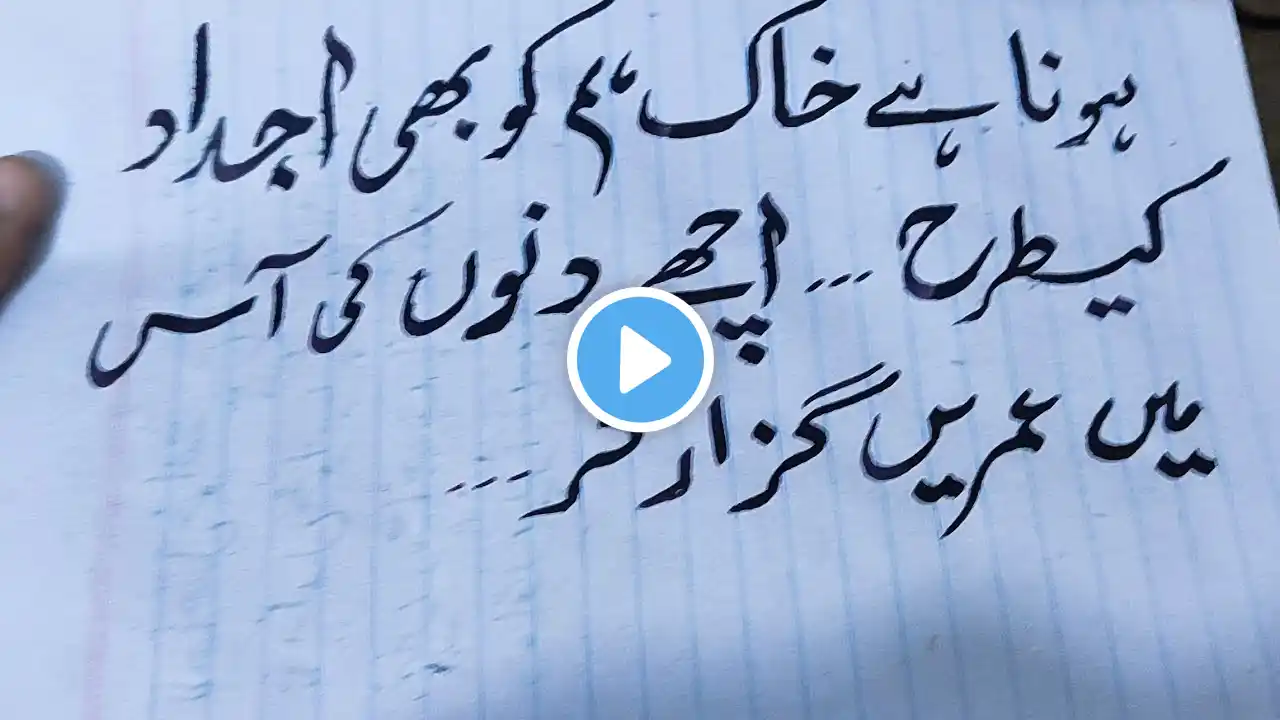 ہونا ہے خاک ہم کو بھی اجداد
کیطرح ... اچھے دنوں کی آس
میں عمریں گزار کر ...